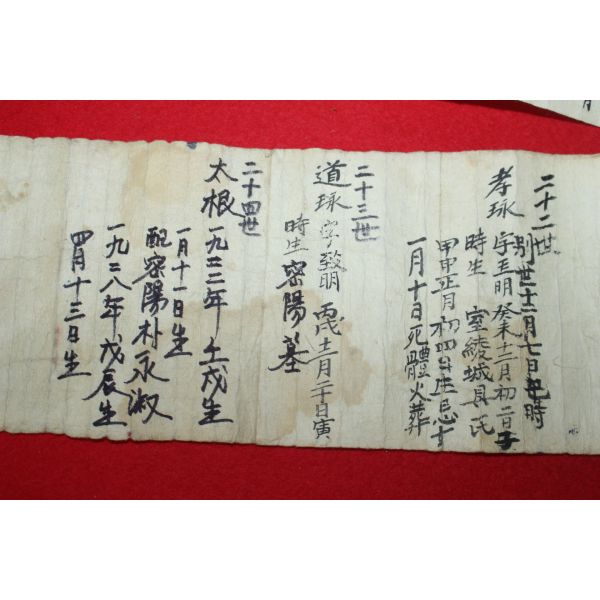 二十二世
別世十二月七日巳時
孝球 字玉明 癸未十二月初二日子
時生 室綾城具氏
甲申正月初四日生忌十
一月十日死體火葬
二十三世
道球 字致明 丙戌十二月二十日寅
時生 密陽墓
二十四世
太根 一九二二年 壬戌生
一月十一日生
配密陽朴永淑
一九二八年戊辰生
四月十三日生